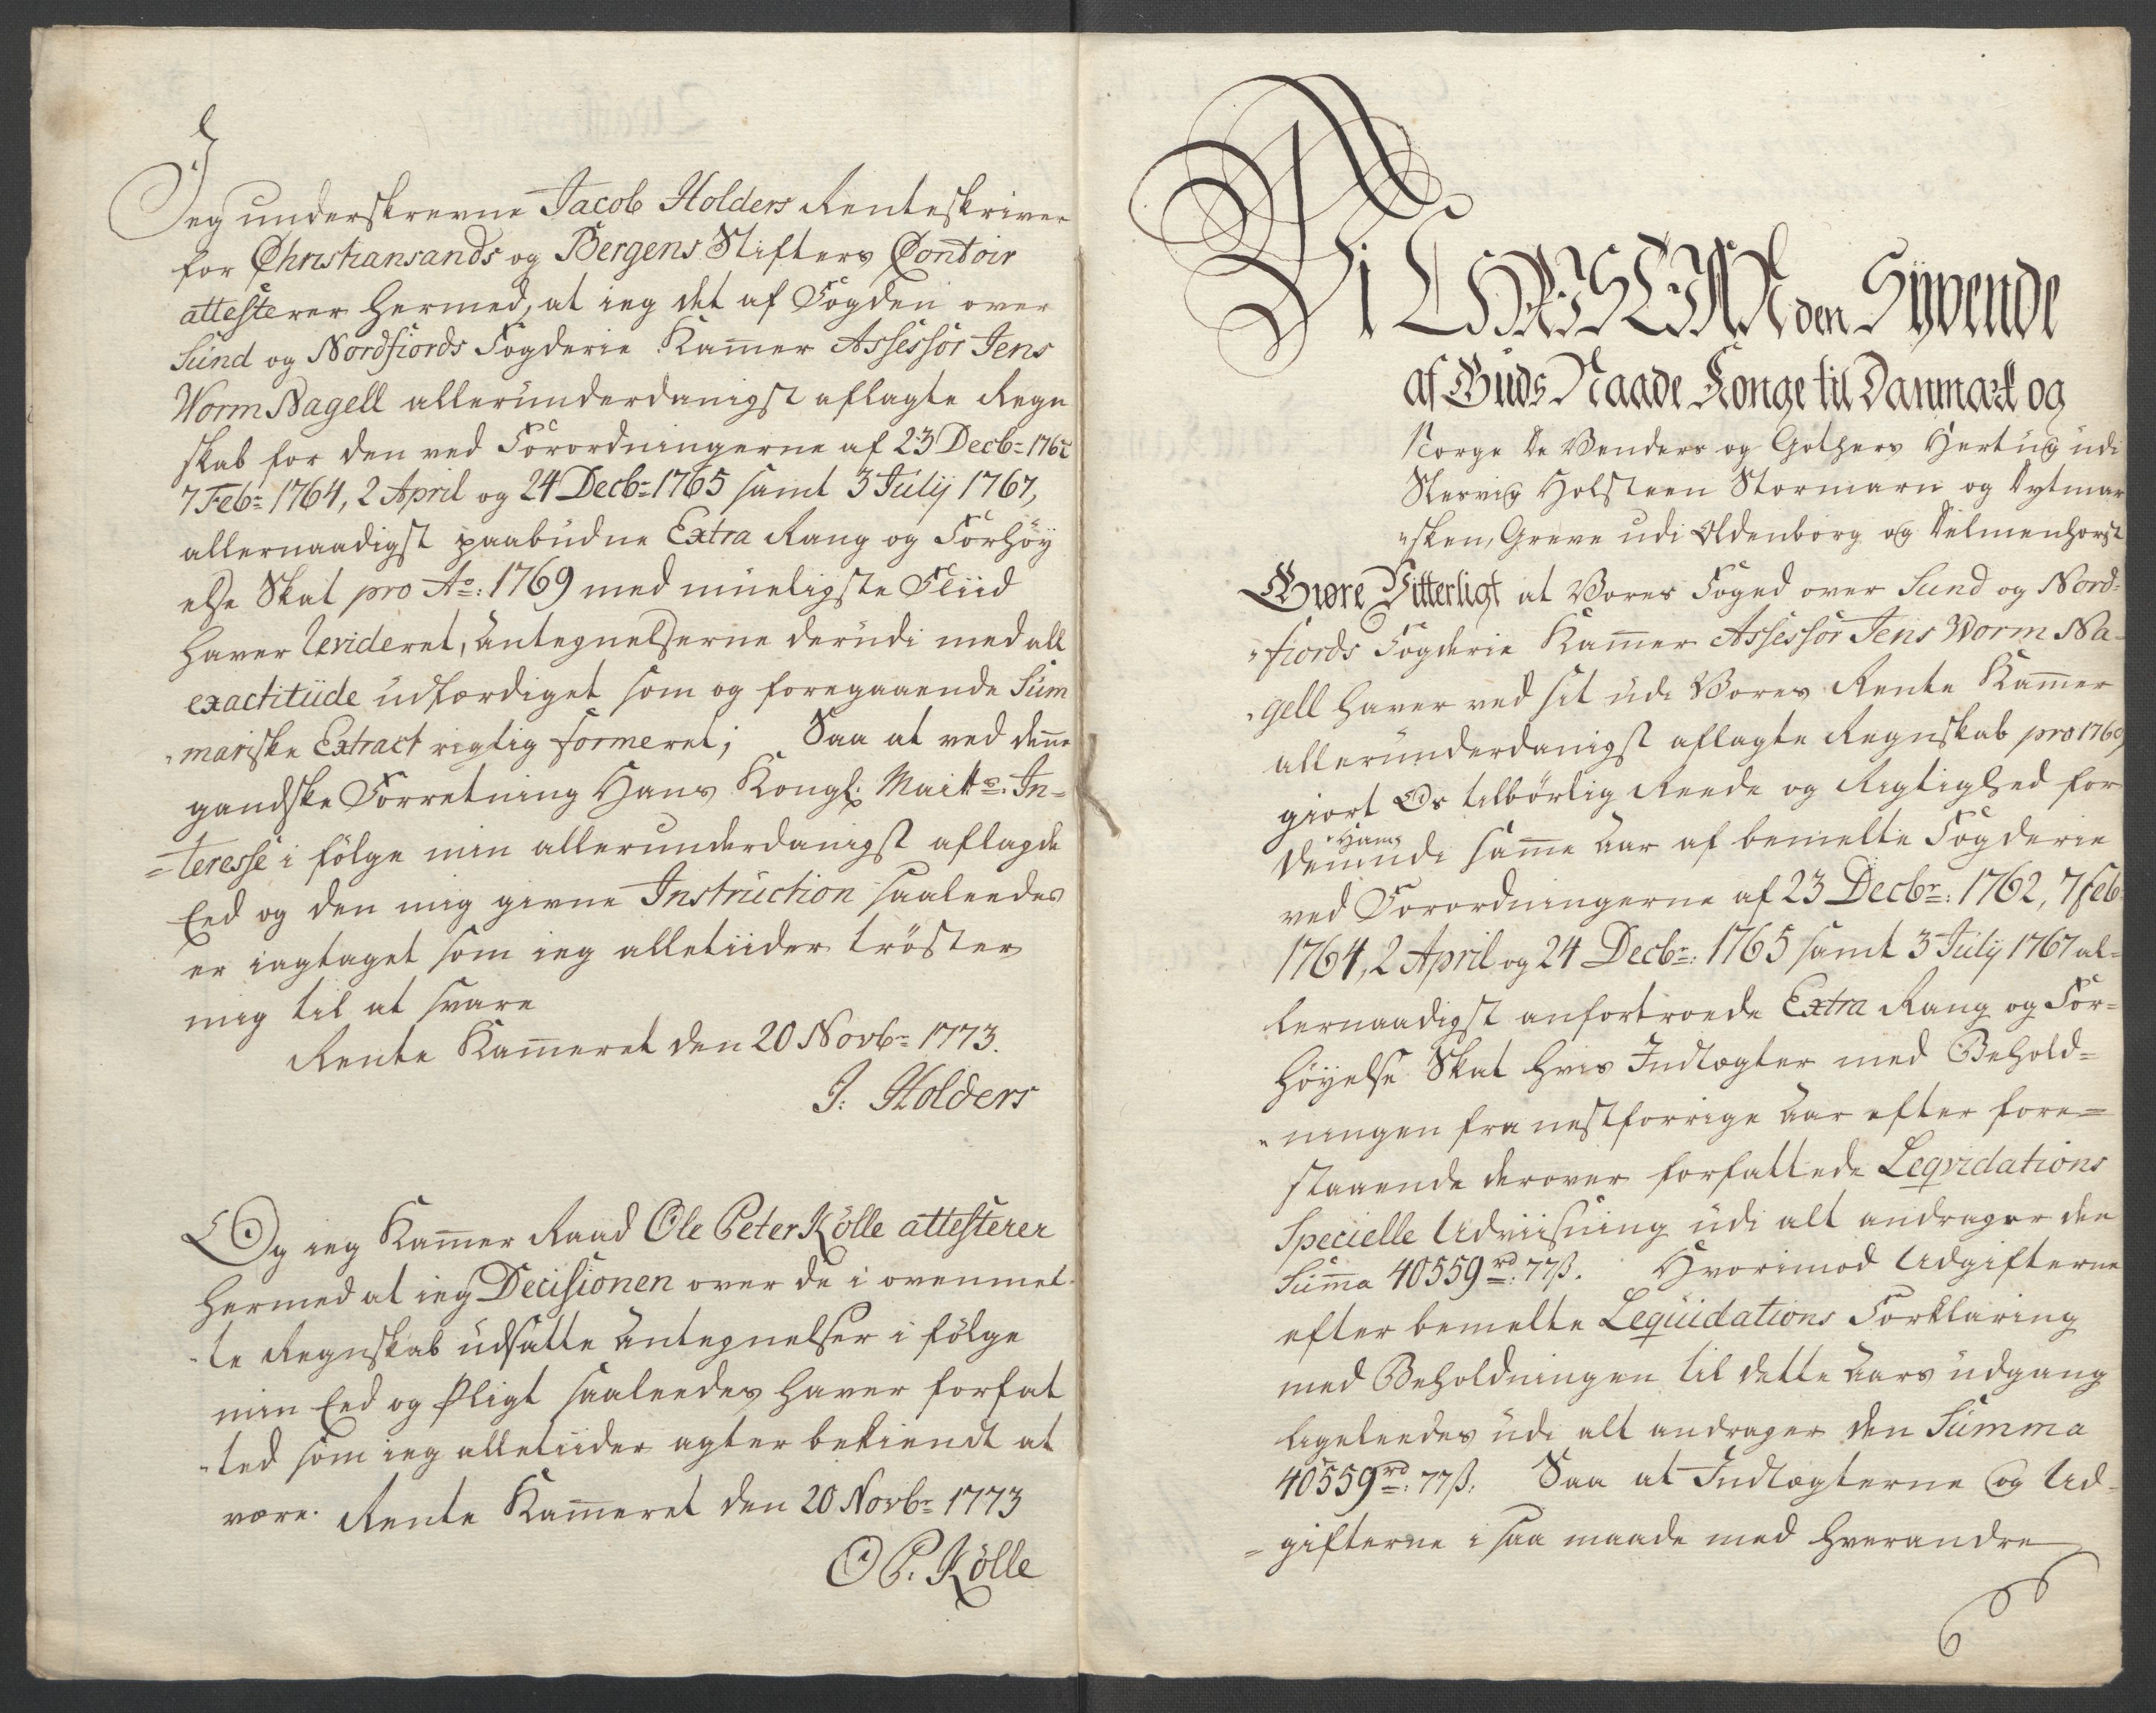 Jeg underskrevne Jacob Holders Renteskriver
for Christiansands og Bergens Stifters Contoir
attesterer hermed, at ieg det af Fogden over
Sund og Nordfiords Fogderie Kam̅er Assessor Jens
Worm Nagell allerunderdanigst aflagte Regn
skab for den ved Forordningerne af 23 Decb= 1762
7 Feb= 1764, 2 April og 24 Decb= 1765 samt 3 Julij 1767,
allernaadigst paabudne Extra Rang og Forhöy
else Skat pro Ao: 1769 med mueligste Fliid
haver Revideret, Antegnelserne derudi med all
exactitüde udfærdiget som og foregaaende Sum
"mariske Extract rigtig formeret; Saa at ved den̅e
gandske Forretning Hans Kongl: Maits: In=
=teresse i fölge min allerunderdanigst aflagde
Eed og den mig givne Instruction saaleedes
er iagtaget som ieg alletiider tröster
mig til at svare
Rente Kam̅eret den 20 Novb= 1773.
J: Holders
Og ieg Kam̅er Raad Ole Peter Kölle attesterer
hermed at ieg Decisionen over de i ovenmel
"te Regnskab udsatte Antegnelser i fölge
min Eed og Pligt saaleedes haver forfat
"ted som ieg alletiider agter bekiendt at
være. Rente Kam̅eret den 20 Novb= 1773
O P. Kölle
Vi CHRISTIAN den Syvende
af Guds Naade Konge til Danmark og
Norge De Venders og Gothers Hertug udi
Slesvig Holsteen Stormarn og Dytmar
"sken, Greve udi Oldenborg og Delmenhorst
Giøre Vitterligt at Vores Foged over Sund og Nord=
"fiords Fogderie Kam̅er Assessor Jens Worm Na-
"gell haver ved sit udi Vores Rente Kam̅er
allerunderdanigst aflagte Regnskab pro 1769
giort Os tilbörlig Reede og Rigtighed for
Hans
den̅e udi sam̅e Aar af bemelte Fogderie
ved Forordningerne af 23 Decbr: 1762, 7 Feb
1764, 2 April og 24 Decbr: 1765 samt 3 Julij 1767 al=
lernaadigst anfortroede Extra Rang og For=
höyelse Skat hvis Indtægter med Behold=
"ningen fra nestforrige Aar efter fore=
staaende derover forfattede Leqvidations
Specielle Udviisning udi alt andrager den
Sum̅a 40559 rd: 77ß. Hvorimod Udgifterne
efter bemelte Lequidations Forklaring
med Beholdningen til dette Aars udgang
ligeleedes udi alt andrager den Summa
40559 rd: 77ß. Saa at Indtægterne og Ud-
=gifterne i saa maade med hverandre